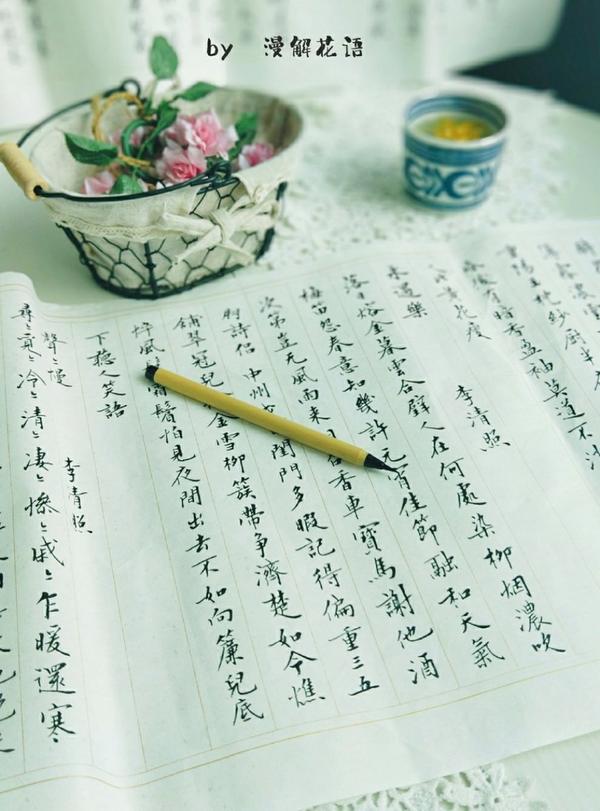 by 漫解花语
重陽玉枕紗厨半
後有暗香盈袖莫道不消
黃花瘦
永遇樂 李清照
落日熔金暮雲合璧人在何處染柳烟濃吹
梅笛怨春意知幾許元宵佳節融和天氣
次第豈无風雨來召香車寶馬謝他酒
朋詩侶 中州閨門多暇記得偏重三五
鋪翠冠兒金雪柳簇帶爭濟楚如今憔
悴風霜鬢怕見夜間出去不如向簾兒底
下聽人笑語
聲〻慢 李清照
尋〻覓〻冷〻清〻凄〻慘〻戚〻乍暖還寒